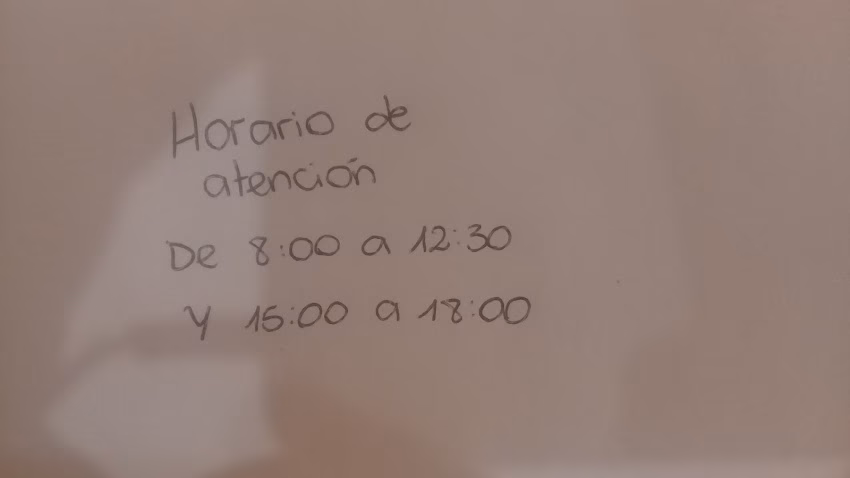 Horario de
atención
De 8:00 a 12:30
y 15:00 a 18:00